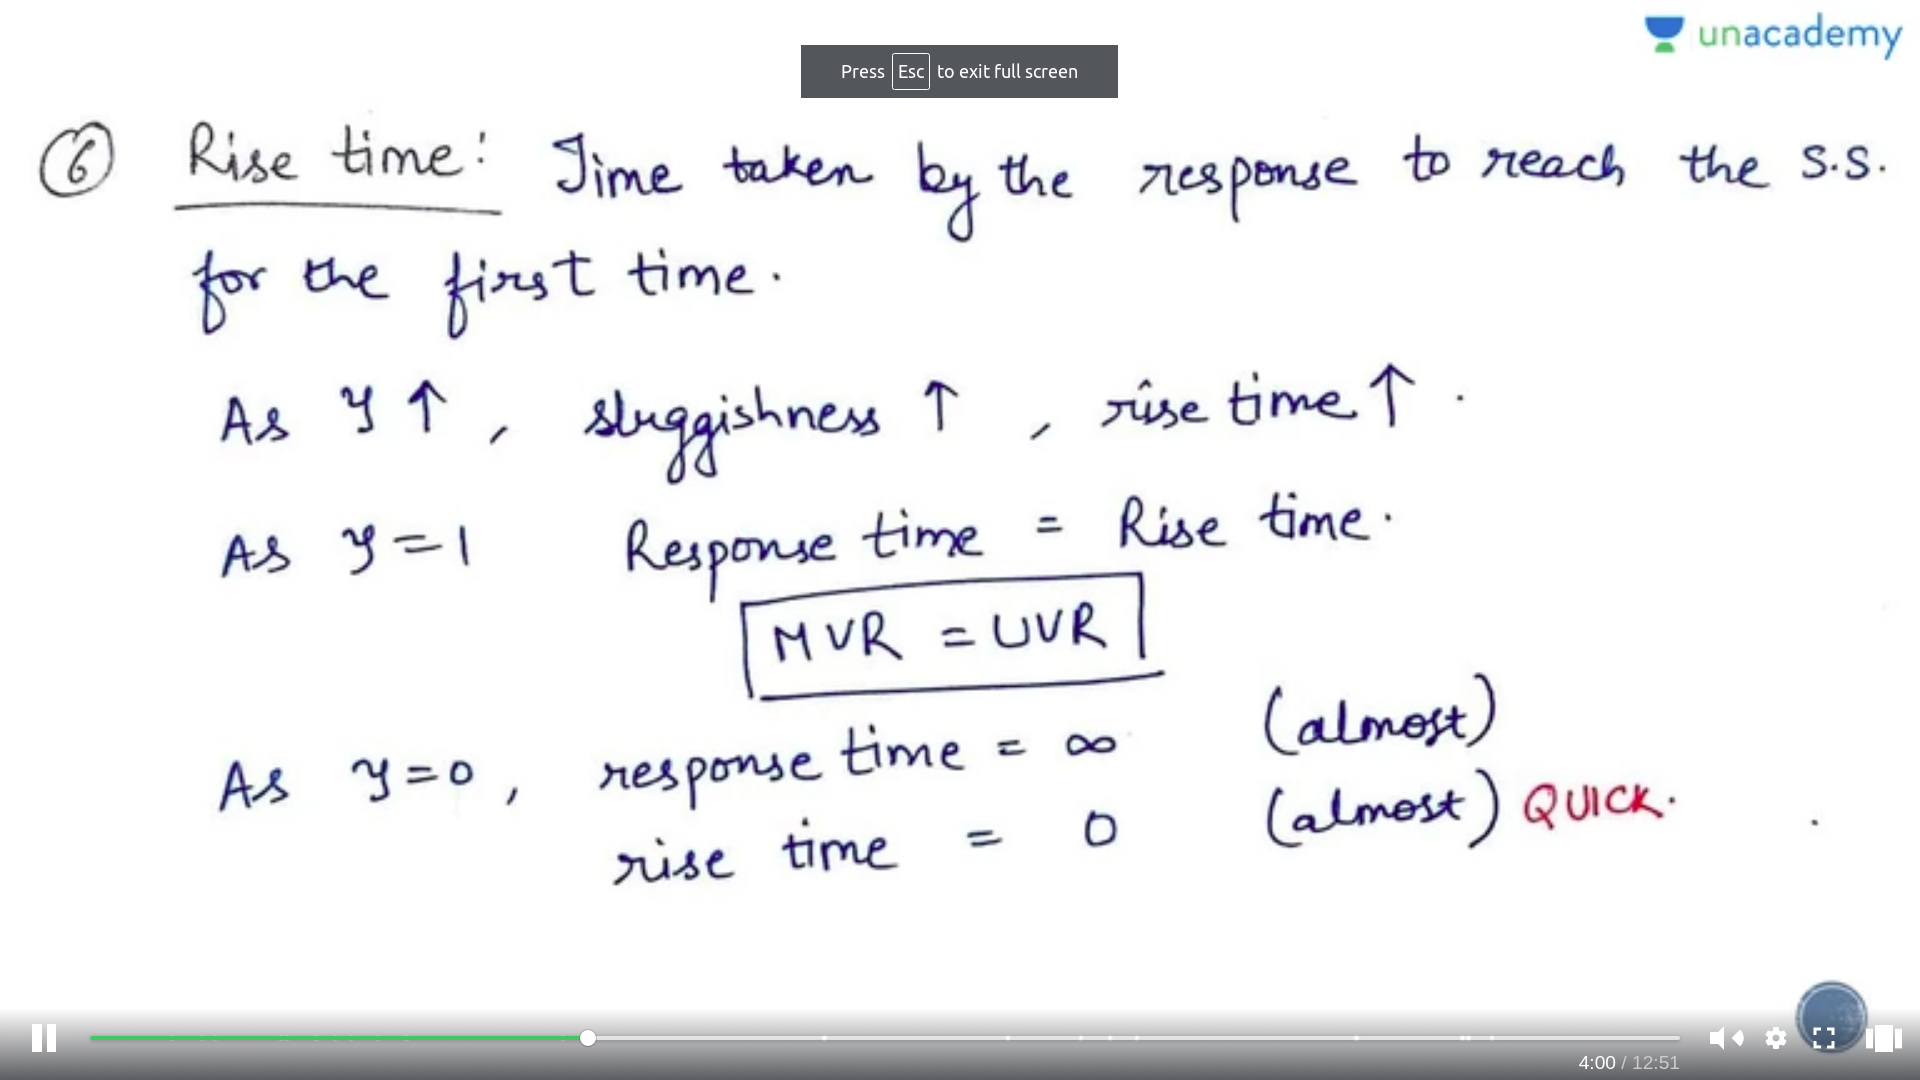 unacademy
Press Esc to exit full screen
6 Rise time: Time taken by the response to reach the S.S.
for the first time.
As ζ ↑, sluggishness ↑, rise time ↑.
As ζ = 1 Response time = Rise time.
MVR = UVR
As ζ = 0, response time = ∞ (almost)
rise time = 0 (almost) QUICK.
4:00 / 12:51